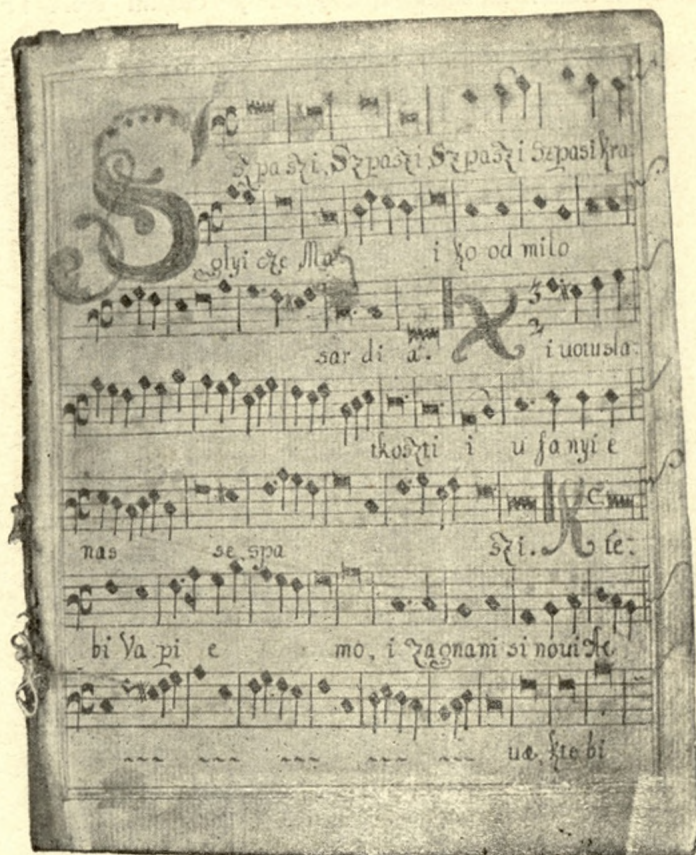 Szpaszi, Szpaszi Szpaszi Szpasi kra:
glyi cze Ma i ko od milo
sar di a. X 3 2 i uotusla:
tkoszti i u fa nyi e
nas se spa szi. K te:
bi Va pi e mo, i zagnani si noui
ua, kte bi